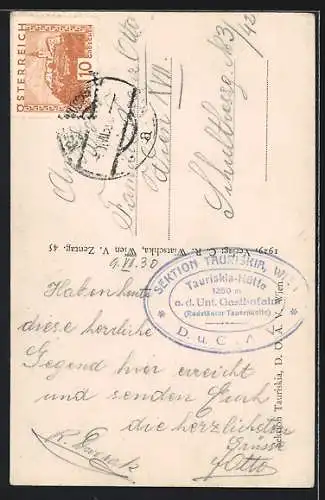 ÖSTERREICH
10
GROSCHEN
An
Familie Otto
Wien XVII.
Schultheßg. №3
/42
1929. Verlag: C. R. Wiatschka, Wien V. Zentag. 45
Sektion Tauriskia, D. Ö. A. V. Wien.
SEKTION TAURISKIA, WIEN
Tauriskia-Hütte
1250 m
a. d. Unt. Gasthofalm
(Radstädter Tauernhütte)
D. u. Ö. A. V.
9.VI.30
Haben heute
diese herrliche
Gegend hier erreicht
und senden Euch
die herzlichsten
Grüsse
Otto